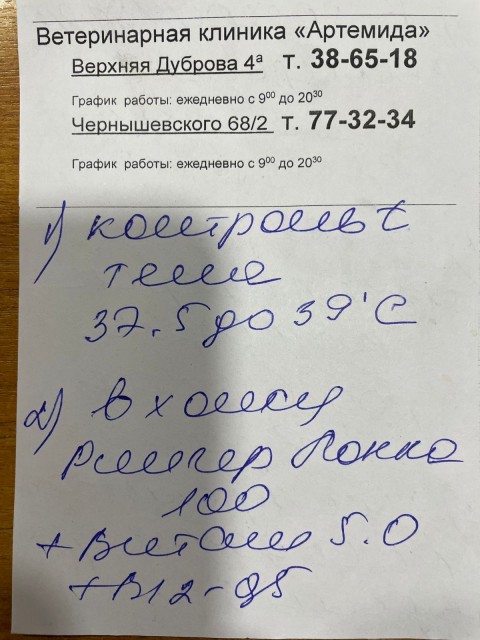 Ветеринарная клиника «Артемида»
Верхняя Дуброва 4а т. 38-65-18
График работы: ежедневно с 900 до 2030
Чернышевского 68/2 т. 77-32-34
График работы: ежедневно с 900 до 2030
1) контроль t
тела
37.5 до 39°C
2) в холку
Рингер Локка
100
+ Витам 5.0
+ B12 - 0,5